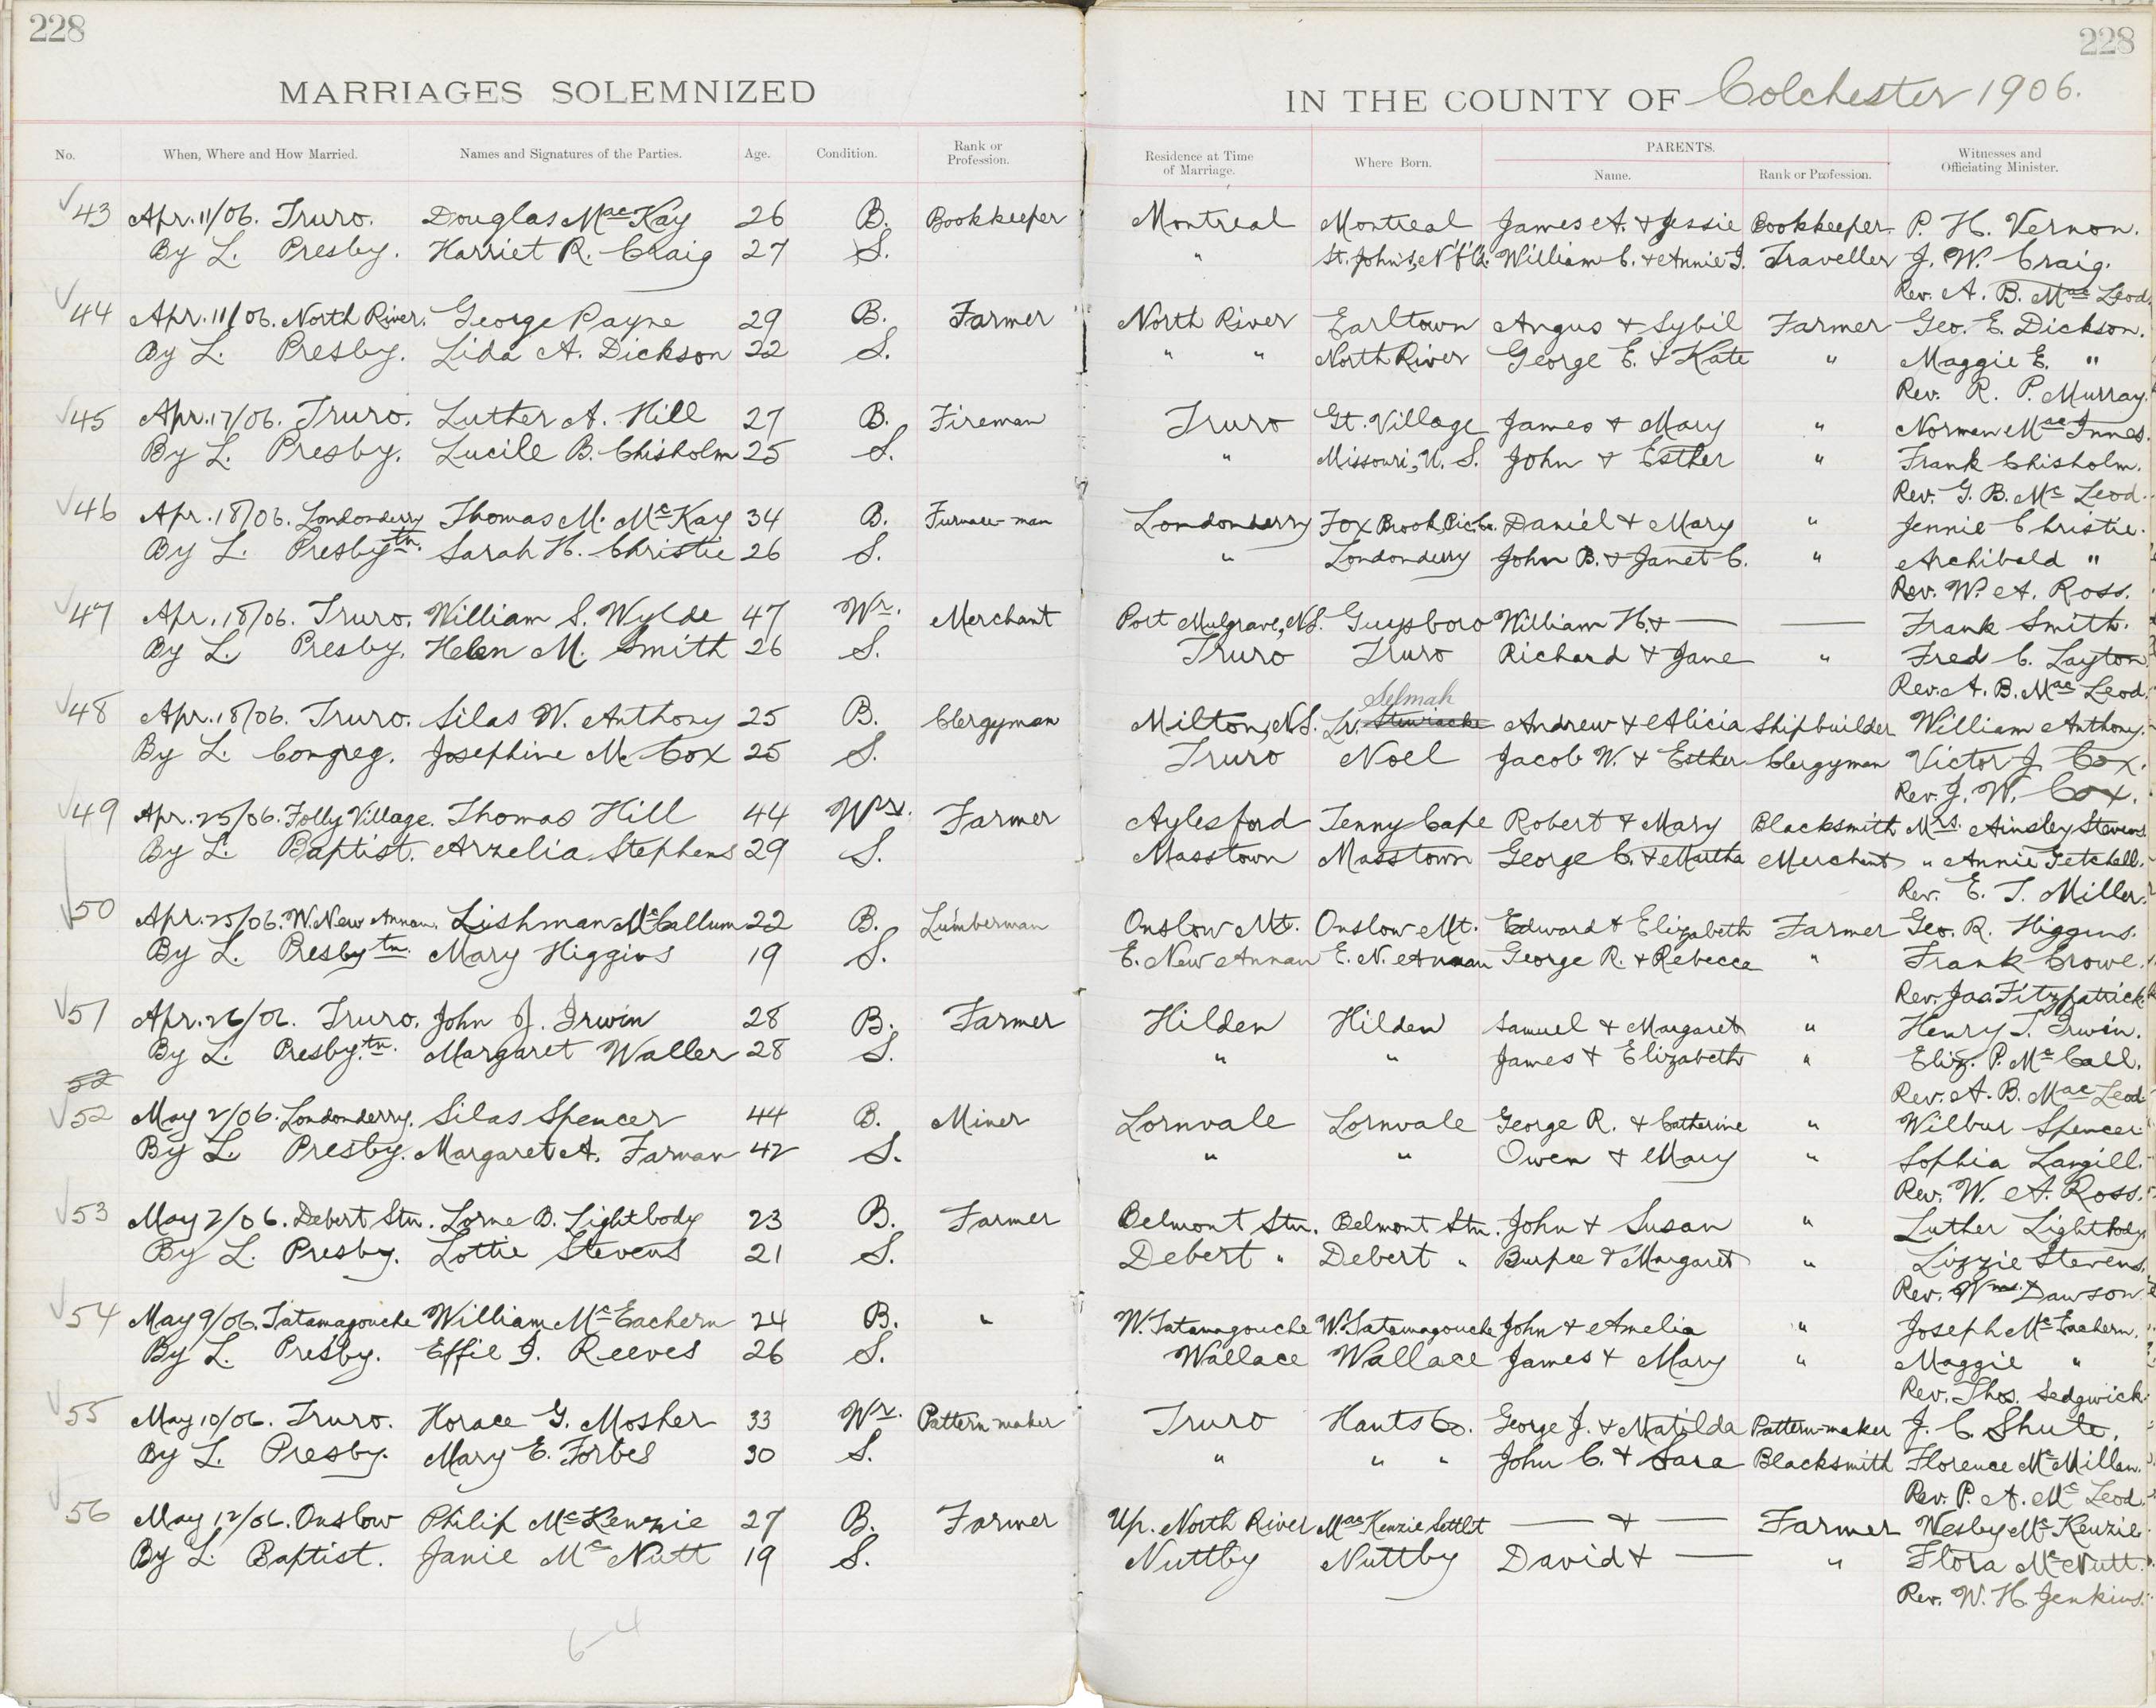 228
228
MARRIAGES SOLEMNIZED IN THE COUNTY OF Colchester 1906.
No. When, Where and How Married. Names and Signatures of the Parties. Age. Condition. Rank or Profession. Residence at Time of Marriage. Where Born. PARENTS. Name. Rank or Profession. Witnesses and Officiating Minister.
43 Apr. 11/06. Truro. Douglas MacKay 26 B. Bookkeeper Montreal Montreal James A. & Jessie Bookkeeper. P. H. Vernon.
By L. Presby. Harriet R. Craig 27 S. " St. John's, N'f'l'd. William C. & Annie J. Traveller J. W. Craig.
Rev. A. B. MacLeod.
44 Apr. 11/06. North River. George Payne 29 B. Farmer North River Earltown Angus & Sybil Farmer Geo. E. Dickson.
By L. Presby. Lida A. Dickson 22 S. " " North River George E. & Kate " Maggie E. "
Rev. R. P. Murray.
45 Apr. 17/06. Truro. Luther A. Hill 27 B. Fireman Truro Gt. Village James & Mary " Norman MacInnes.
By L. Presby. Lucile B. Chisholm 25 S. " Missouri, U. S. John & Esther " Frank Chisholm.
Rev. G. B. McLeod.
46 Apr. 18/06. Londonderry Thomas M. McKay 34 B. Furnace-man Londonderry Fox Brook, Pic. Co. Daniel & Mary " Jennie Christie.
By L. Presbytn. Sarah H. Christie 26 S. " Londonderry John B. & Janet C. " Archibald "
Rev. W. A. Ross.
47 Apr. 18/06. Truro. William S. Wylde 47 Wr. Merchant Port Mulgrave, N.S. Guysboro William H. & — — Frank Smith.
By L. Presby. Helen M. Smith 26 S. Truro Truro Richard & Jane " Fred C. Layton.
Rev. A. B. MacLeod.
Selmah
48 Apr. 18/06. Truro. Silas W. Anthony 25 B. Clergyman Milton, N.S. Lr. Stewiacke Andrew & Alicia Shipbuilder William Anthony.
By L. Congreg. Josephine M. Cox 25 S. Truro Noel Jacob W. & Esther Clergyman Victor J. Cox.
Rev. J. W. Cox.
49 Apr. 25/06. Folly Village. Thomas Hill 44 Wr. Farmer Aylesford Tenny Cape Robert & Mary Blacksmith Mrs. Ainsley Stevens.
By L. Baptist. Arzelia Stephens 29 S. Masstown Masstown George C. & Martha Merchant " Annie Getchell.
Rev. E. T. Miller.
50 Apr. 25/06. W. New Annan. Lishman McCallum 22 B. Lumberman Onslow Mt. Onslow Mt. Edward & Elizabeth Farmer Geo. R. Higgins.
By L. Presbytn. Mary Higgins 19 S. E. New Annan E. N. Annan George R. & Rebecca " Frank Crowe.
Rev. Jas. Fitzpatrick.
51 Apr. 26/06. Truro. John J. Irwin 28 B. Farmer Hilden Hilden Samuel & Margaret " Henry T. Irwin.
By L. Presby.tn. Margaret Waller 28 S. " " James & Elizabeth " Eliz. P. McCall.
Rev. A. B. MacLeod
52
52 May 2/06. Londonderry. Silas Spencer 44 B. Miner Lornvale Lornvale George R. & Catherine " Wilbur Spencer.
By L. Presby. Margaret A. Farman 42 S. " " Owen & Mary " Sophia Langill.
Rev. W. A. Ross.
53 May 2/06. Debert Stn. Lorne B. Lightbody 23 B. Farmer Belmont Stn. Belmont Stn. John & Susan " Luther Lightbody.
By L. Presby. Lottie Stevens 21 S. Debert " Debert " Burpee & Margaret " Lizzie Stevens.
Rev. Wm. Dawson.
54 May 9/06. Tatamagouche William McEachern 24 B. " W. Tatamagouche W. Tatamagouche John & Amelia " Joseph McEachern.
By L. Presby. Effie J. Reeves 26 S. Wallace Wallace James & Mary " Maggie "
Rev. Thos. Sedgwick.
55 May 10/06. Truro. Horace G. Mosher 33 Wr. Pattern-maker Truro Hants Co. George J. & Matilda Pattern-maker J. C. Shute.
By L. Presby. Mary E. Forbes 30 S. " " " John C. & Sara Blacksmith Florence McMillan.
Rev. P. A. McLeod.
56 May 12/06. Onslow Philip McKenzie 27 B. Farmer Up. North River MacKenzie Settl't — & — Farmer Wesby McKenzie.
By L. Baptist. Janie McNutt 19 S. Nuttby Nuttby David & — " Flora McNutt.
Rev. W. H. Jenkins.
6-4